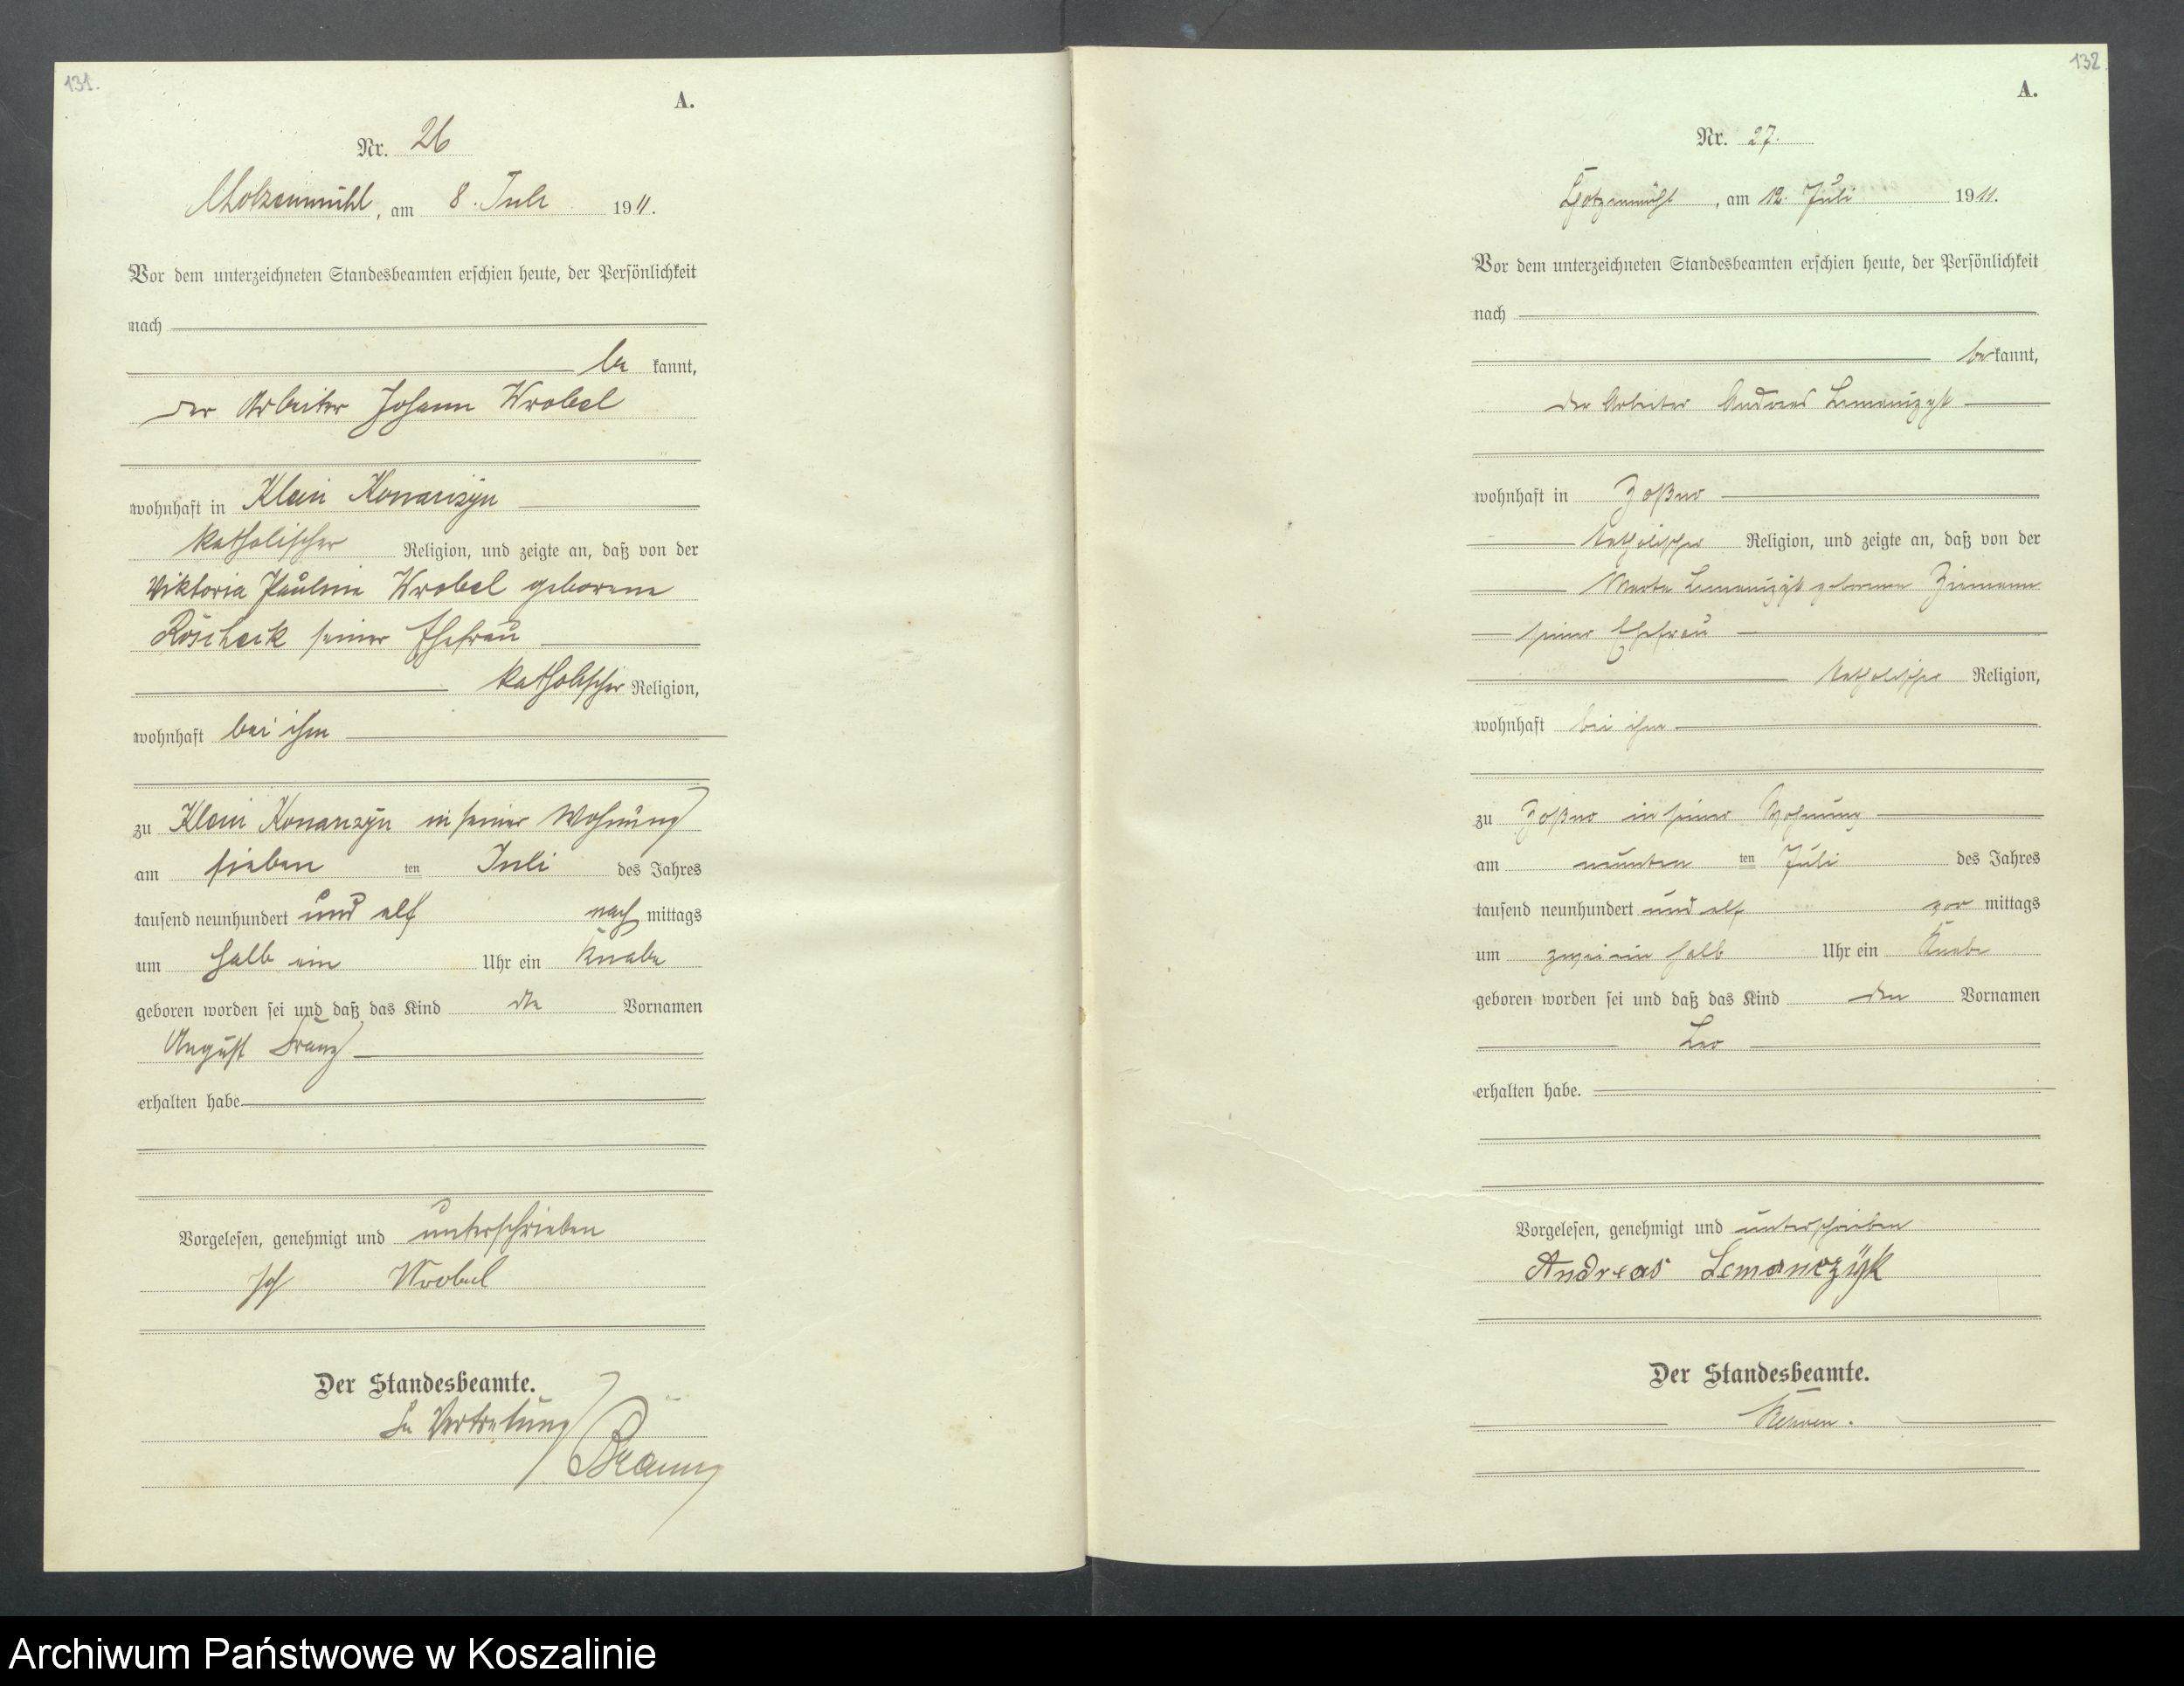 131.
A.
Nr. 26
Chotzenmühl, am 8. Juli 1911.
Vor dem unterzeichneten Standesbeamten erschien heute, der Persönlichkeit
nach
be kannt,
der Arbeiter Johann Wrobel
wohnhaft in Klein Konarczyn
katholischer Religion, und zeigte an, daß von der
Viktoria Pauline Wrobel geborene
seiner Ehefrau
katholischer Religion,
wohnhaft bei ihm
zu Klein Konarczyn in seiner Wohnung
am sieben ten Juli des Jahres
tausend neunhundert und elf nach mittags
um halb ein Uhr ein Knabe
geboren worden sei und daß das Kind die Vornamen
August Franz
erhalten habe
Vorgelesen, genehmigt und unterschrieben
Joh Wrobel
Der Standesbeamte.
In Vertretung
132.
A.
Nr. 27.
Chotzenmühl, am 12. Juli 1911.
Vor dem unterzeichneten Standesbeamten erschien heute, der Persönlichkeit
nach
be kannt,
der Arbeiter Andreas Lemanczyk
wohnhaft in
katholischer Religion, und zeigte an, daß von der
Marta Lemanczyk geborenen Ziemann
seiner Ehefrau
katholischer Religion,
wohnhaft bei ihm
zu in seiner Wohnung
am neunten ten Juli des Jahres
tausend neunhundert und elf vor mittags
um zweiein halb Uhr ein Knabe
geboren worden sei und daß das Kind den Vornamen
Leo
erhalten habe.
Vorgelesen, genehmigt und unterschrieben
Andreas Lemanczÿk
Der Standesbeamte.
Archiwum Państwowe w Koszalinie